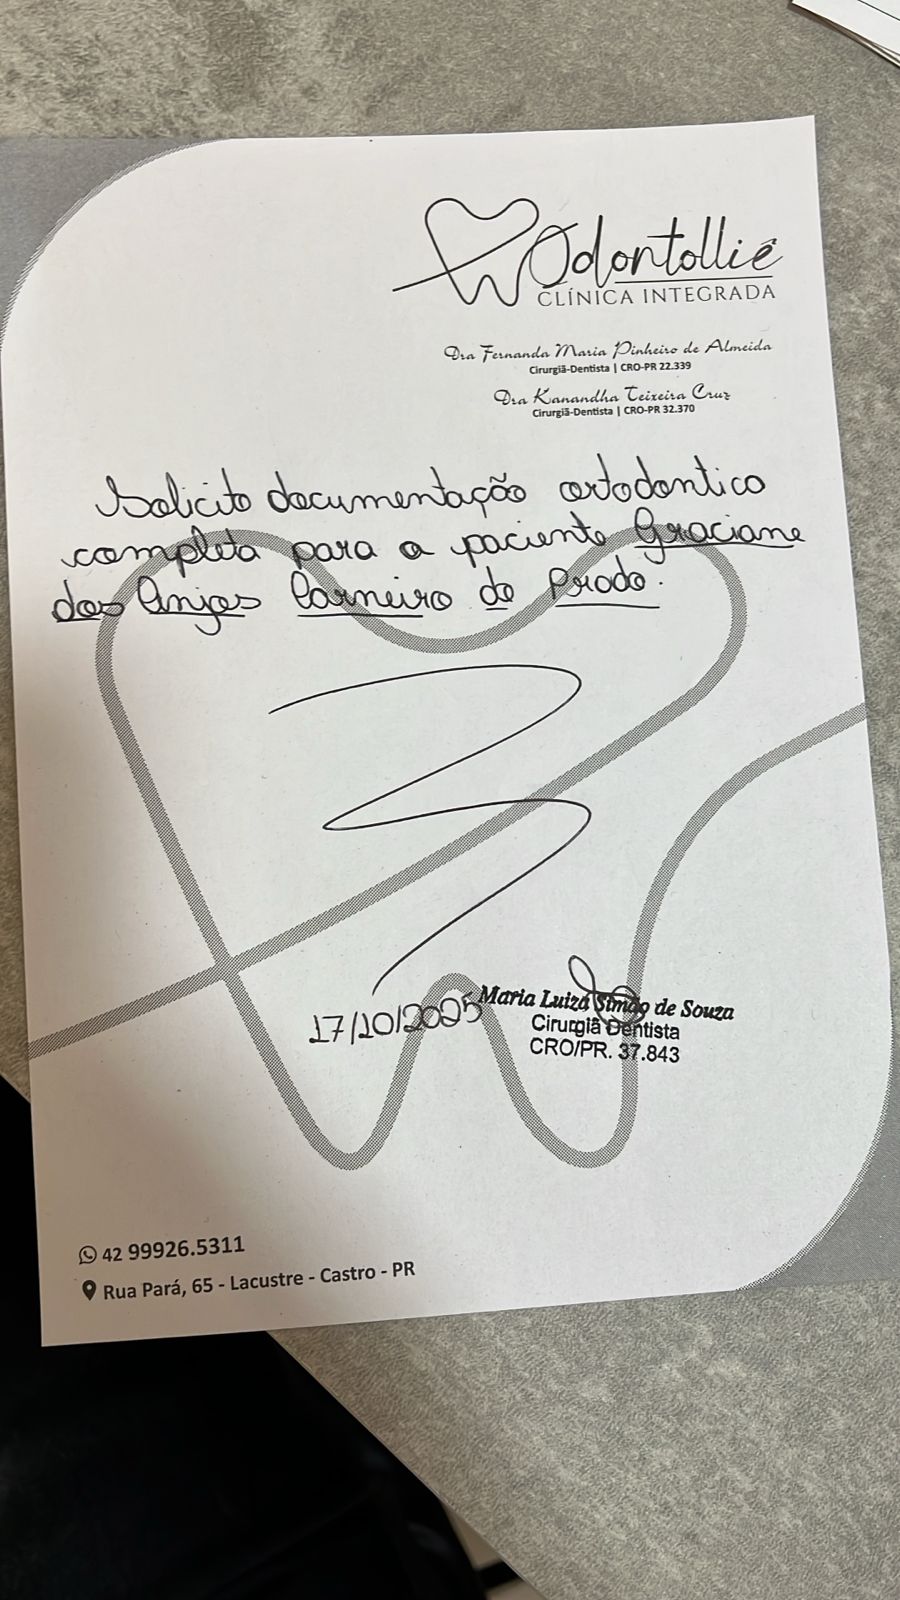 Odontollié
CLÍNICA INTEGRADA
Dra Fernanda Maria Pinheiro de Almeida
Cirurgiã-Dentista | CRO-PR 22.339
Dra Kanandha Teixeira Cruz
Cirurgiã-Dentista | CRO-PR 32.370
Solicito documentação ortodontica
completa para a paciente Graciane
dos Anjos Carneiro do Prado.
17/10/2025
Maria Luiza Simão de Souza
Cirurgiã Dentista
CRO/PR. 37.843
42 99926.5311
Rua Pará, 65 - Lacustre - Castro - PR